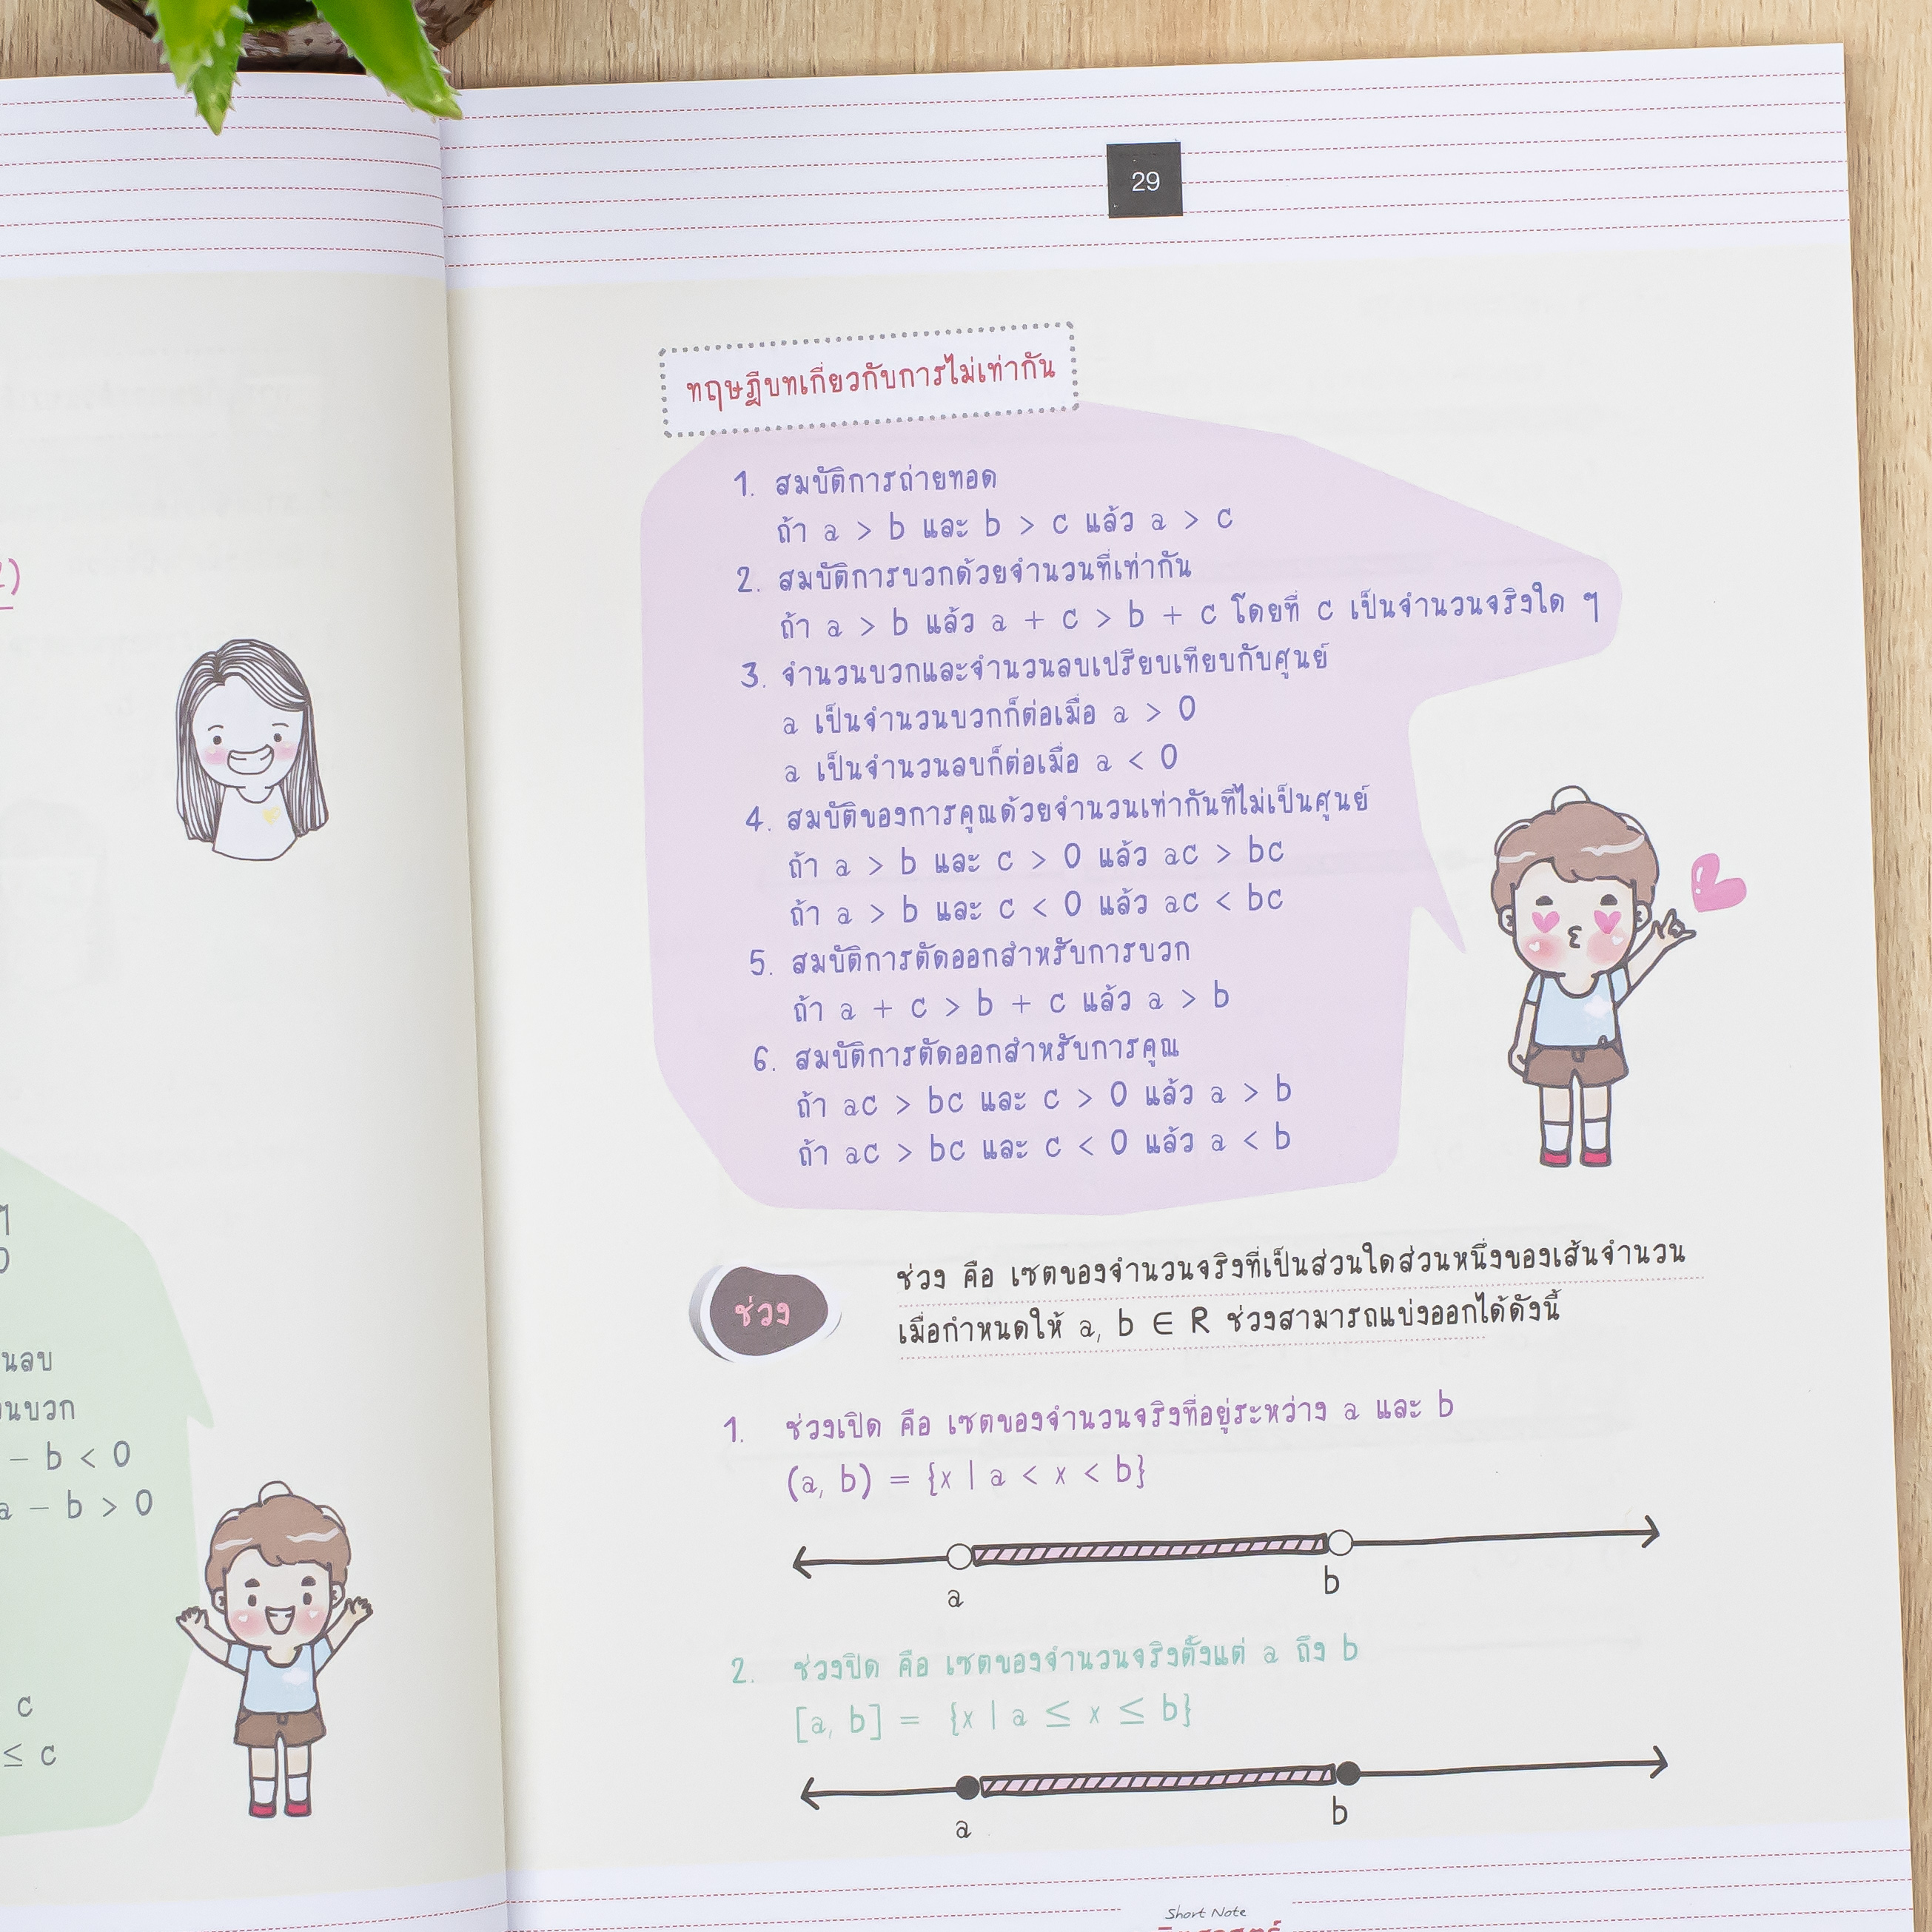 2)
ๆ
0
นลบ
วนบวก
− b < 0
a − b > 0
c
≤ c
29
ทฤษฎีบทเกี่ยวกับการไม่เท่ากัน
1. สมบัติการถ่ายทอด
ถ้า a > b และ b > c แล้ว a > c
2. สมบัติการบวกด้วยจำนวนที่เท่ากัน
ถ้า a > b แล้ว a + c > b + c โดยที่ c เป็นจำนวนจริงใด ๆ
3. จำนวนบวกและจำนวนลบเปรียบเทียบกับศูนย์
a เป็นจำนวนบวกก็ต่อเมื่อ a > 0
a เป็นจำนวนลบก็ต่อเมื่อ a < 0
4. สมบัติของการคูณด้วยจำนวนเท่ากันที่ไม่เป็นศูนย์
ถ้า a > b และ c > 0 แล้ว ac > bc
ถ้า a > b และ c < 0 แล้ว ac < bc
5. สมบัติการตัดออกสำหรับการบวก
ถ้า a + c > b + c แล้ว a > b
6. สมบัติการตัดออกสำหรับการคูณ
ถ้า ac > bc และ c > 0 แล้ว a > b
ถ้า ac > bc และ c < 0 แล้ว a < b
ช่วง
ช่วง คือ เซตของจำนวนจริงที่เป็นส่วนใดส่วนหนึ่งของเส้นจำนวน
เมื่อกำหนดให้ a, b ∈ R ช่วงสามารถแบ่งออกได้ดังนี้
1. ช่วงเปิด คือ เซตของจำนวนจริงที่อยู่ระหว่าง a และ b
(a, b) = {x | a < x < b}
a b
2. ช่วงปิด คือ เซตของจำนวนจริงตั้งแต่ a ถึง b
[a, b] = {x | a ≤ x ≤ b}
a b
Short Note